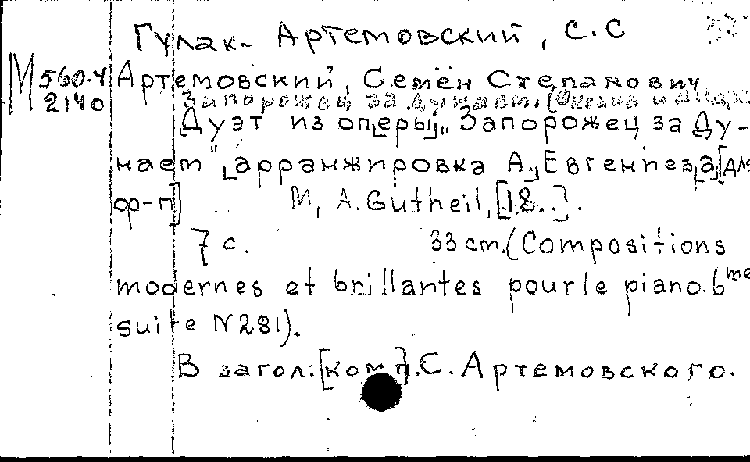 Гулак- Артемовский, С.С
М 560.4 Артемовский, Семён Степанович
2140 Запорожец за Дунаем.
Дуэт из оперы „Запорожец за Ду-
наем" [арранжировка А. Евгениева] [для
ф-п] М, A. Gutheil, [18..].
7 с. 33 cm. (Compositions
modernes et brillantes pour le piano. 6me
suite N 281).
В загол. [комп]. С. Артемовского.